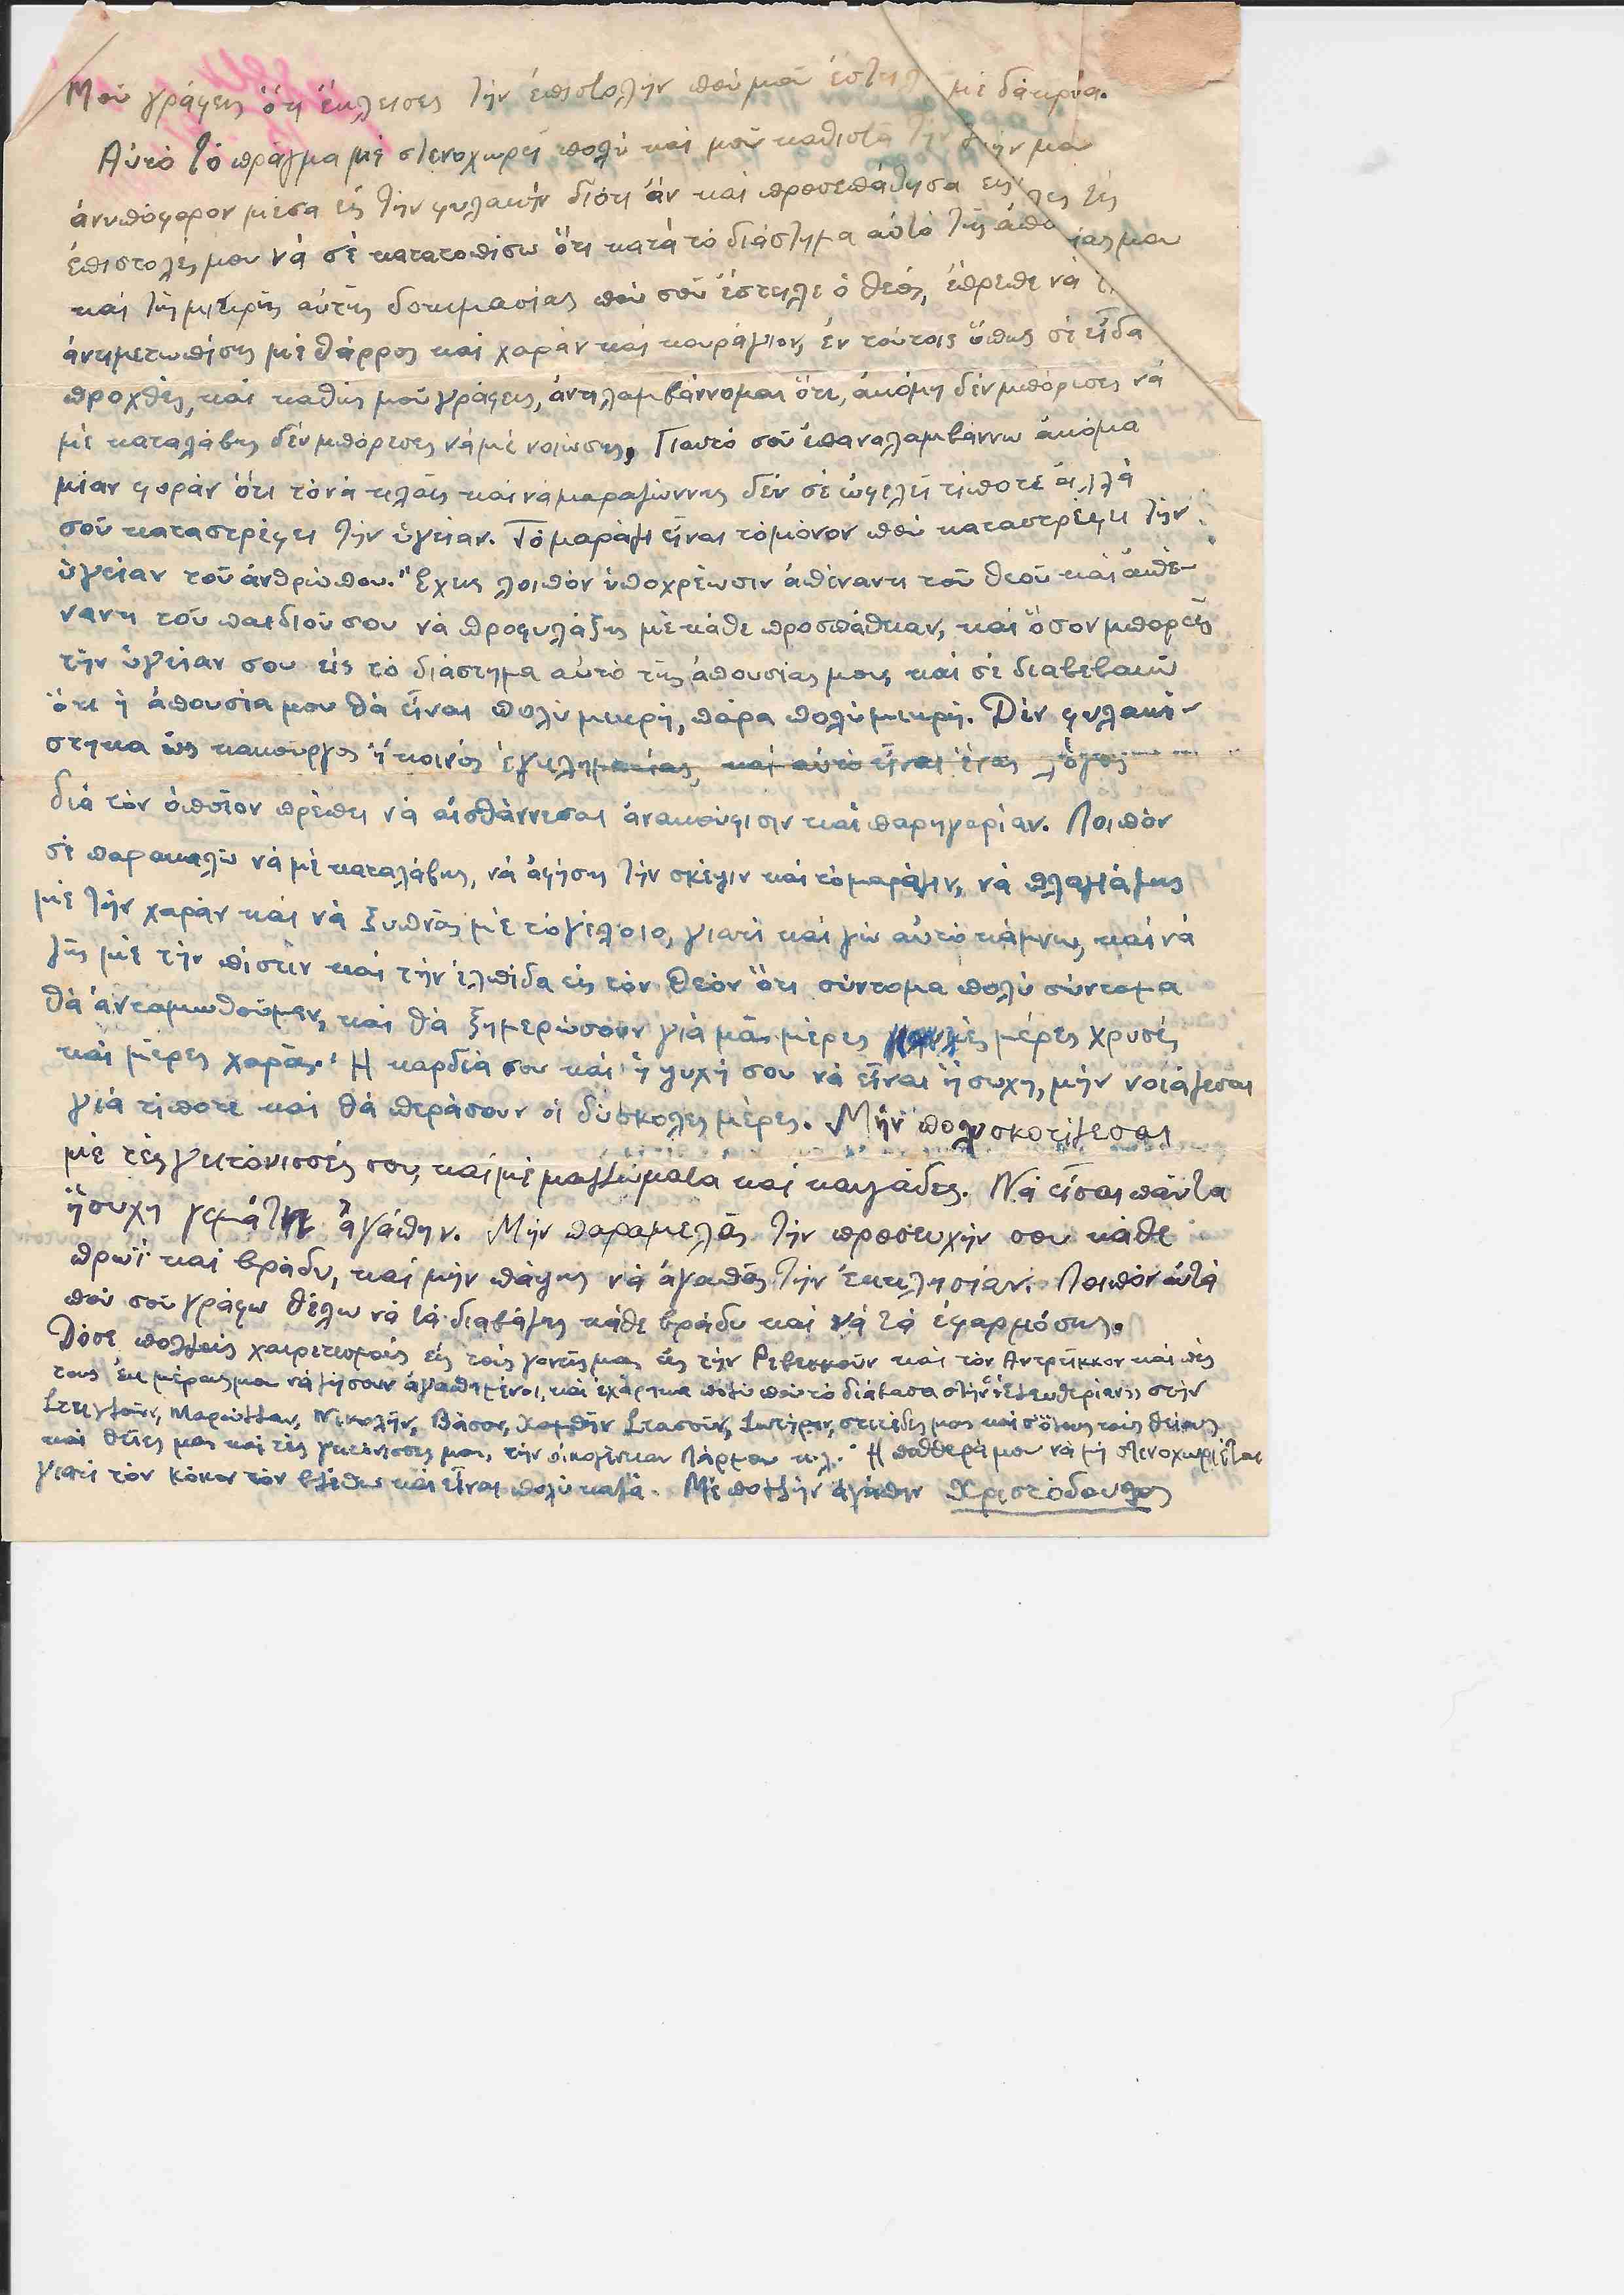 Μοῦ γράφεις ὅτι ἔκλεισες τὴν ἐπιστολὴν ποὺ μοῦ ἔστειλ μὲ δάκρυα.
Αὐτὸ τὸ πρᾶγμα μὲ στενοχωρεῖ πολὺ καὶ μοῦ καθιστᾶ τὴν ζωὴν μου
ἀνυπόφορον μέσα εἰς τὴν φυλακὴν διότι ἂν καὶ προσεπάθησα εἰς λες τὶς
ἐπιστολές μου νὰ σὲ κατατοπίσω ὅτι κατὰ τὸ διάστημα αὐτὸ τῆς ἀπο ίας μου
καὶ τῆς μικρῆς αὐτῆς δοκιμασίας ποὺ σοῦ ἔστειλε ὁ Θεός, ἔπρεπε νὰ τ
ἀντιμετωπίσῃς μὲ θάρρος καὶ χαρὰν καὶ κουράγιον, ἐν τούτοις ὅπως σὲ εἶδα
προχθές, καὶ καθὼς μοῦ γράφεις, ἀντιλαμβάννομαι ὅτι, ἀκόμη δὲν μπόρισες νὰ
μὲ καταλάβῃς δὲν μπόρεσες νὰ μὲ νοιώσῃς, Γιαυτὸ σοῦ ἐπαναλαμβάννω ἀκόμα
μίαν φορὰν ὅτι τὸ νὰ κλαῖς καὶ νὰ μαραζώννῃς δὲν σὲ ὠφελεῖ τίποτε ἀλλὰ
σοῦ καταστρέφει τὴν ὑγείαν. Τὸ μαράζι εἶναι τὸ μόνον ποὺ καταστρέφει τὴν
ὑγείαν τοῦ ἀνθρώπου. Ἔχεις λοιπὸν ὑποχρέωσιν ἀπέναντι τοῦ Θεοῦ καὶ ἀπέ-
ναντι τοῦ παιδιοῦ σου νὰ προφυλάξῃς μὲ κάθε προσπάθειαν, καὶ ὅσον μπορεῖς
τὴν ὑγείαν σου εἰς τὸ διάστημα αὐτὸ τῆς ἀπουσίας μου, καὶ σὲ διαβεβαιῶ
ὅτι ἡ ἀπουσία μου θὰ εἶναι πολὺ μικρή, πάρα πολὺ μικρή. Δὲν φυλακί-
στηκα ὡς κακοῦργος ἢ κοινὸς ἐγκληματίας, καὶ αὐτὸ εἶναι ἕνας λόγος
διὰ τὸν ὁποῖον πρέπει νὰ αἰσθάννεσαι ἀνακούφισιν καὶ παρηγορίαν. Λοιπὸν
σὲ παρακαλῶ νὰ μὲ καταλάβῃς, νὰ ἀφήσῃς τὴν σκέψιν καὶ τὸ μαράζιν, νὰ πλαγιάζῃς
μὲ τὴν χαρὰν καὶ νὰ ξυπνᾷς μὲ τὸ γέλοιο, γιατὶ καὶ γὼ αὐτὸ κάμνω, καὶ νὰ
ζῇς μὲ τὴν πίστιν καὶ τὴν ἐλπίδα εἰς τὸν Θεὸν ὅτι σύντομα πολὺ σύντομα
θὰ ἀνταμωθοῦμεν, καὶ θὰ ξημερώσουν γιὰ μᾶς μέρες καλὲς μέρες χρυσές
καὶ μέρες χαρᾶς. Ἡ καρδιά σου καὶ ἡ ψυχή σου νὰ εἶναι ἥσυχη, μὴν νοιάζεσαι
γιὰ τίποτε καὶ θὰ περάσουν οἱ δύσκολες μέρες. Μὴν πολυσκοτίζεσαι
μὲ τὲς γειτόνισσές σου, καὶ μὲ μαζώματα καὶ καυγάδες. Νὰ εἶσαι πάντα
ἥσυχη γεμάτη ἀγάπην. Μὴν παραμελᾷς τὴν προσευχήν σου κάθε
πρωῒ καὶ βράδυ, καὶ μὴν πάψῃς νὰ ἀγαπᾷς τὴν ἐκκλησίαν. Λοιπὸν αὐτὰ
ποὺ σοῦ γράφω θέλω νὰ τὰ διαβάζῃς κάθε βράδυ καὶ νὰ τὰ ἐφαρμόσῃς.
Δόσε πολλοὺς χαιρετισμοὺς εἰς τοὺς γονεῖς μας εἰς τὴν Ρεβεκκοῦν καὶ τὸν Αντρίκκον καὶ πὲς
τους ἐκ μέρους μου νὰ ζήσουν ἀγαπημένοι, καὶ ἐχάρηκα πολὺ ποὺ τὸ διάβασα στὴν «Ἐλευθερίαν» στὴν
Στελλοῦν, Μαρούλλαν, Νικολῆν, Βάσον, Χαμπῆν Στασοῦν, Σωτήρην, στετέδες μας καὶ σ' ὅλους τοὺς θείους
καὶ θεῖες μας καὶ τὲς γειτόνισσες μας, τὴν οἰκογένειαν Λάρκου κ.λ. Ἡ πεθθερά μου νὰ μὴ στενοχωριέται
γιατὶ τὸν Κόκον τὸν βλέπω καὶ εἶναι πολὺ καλά. Μὲ πολλὴν ἀγάπην Χριστόδουλος